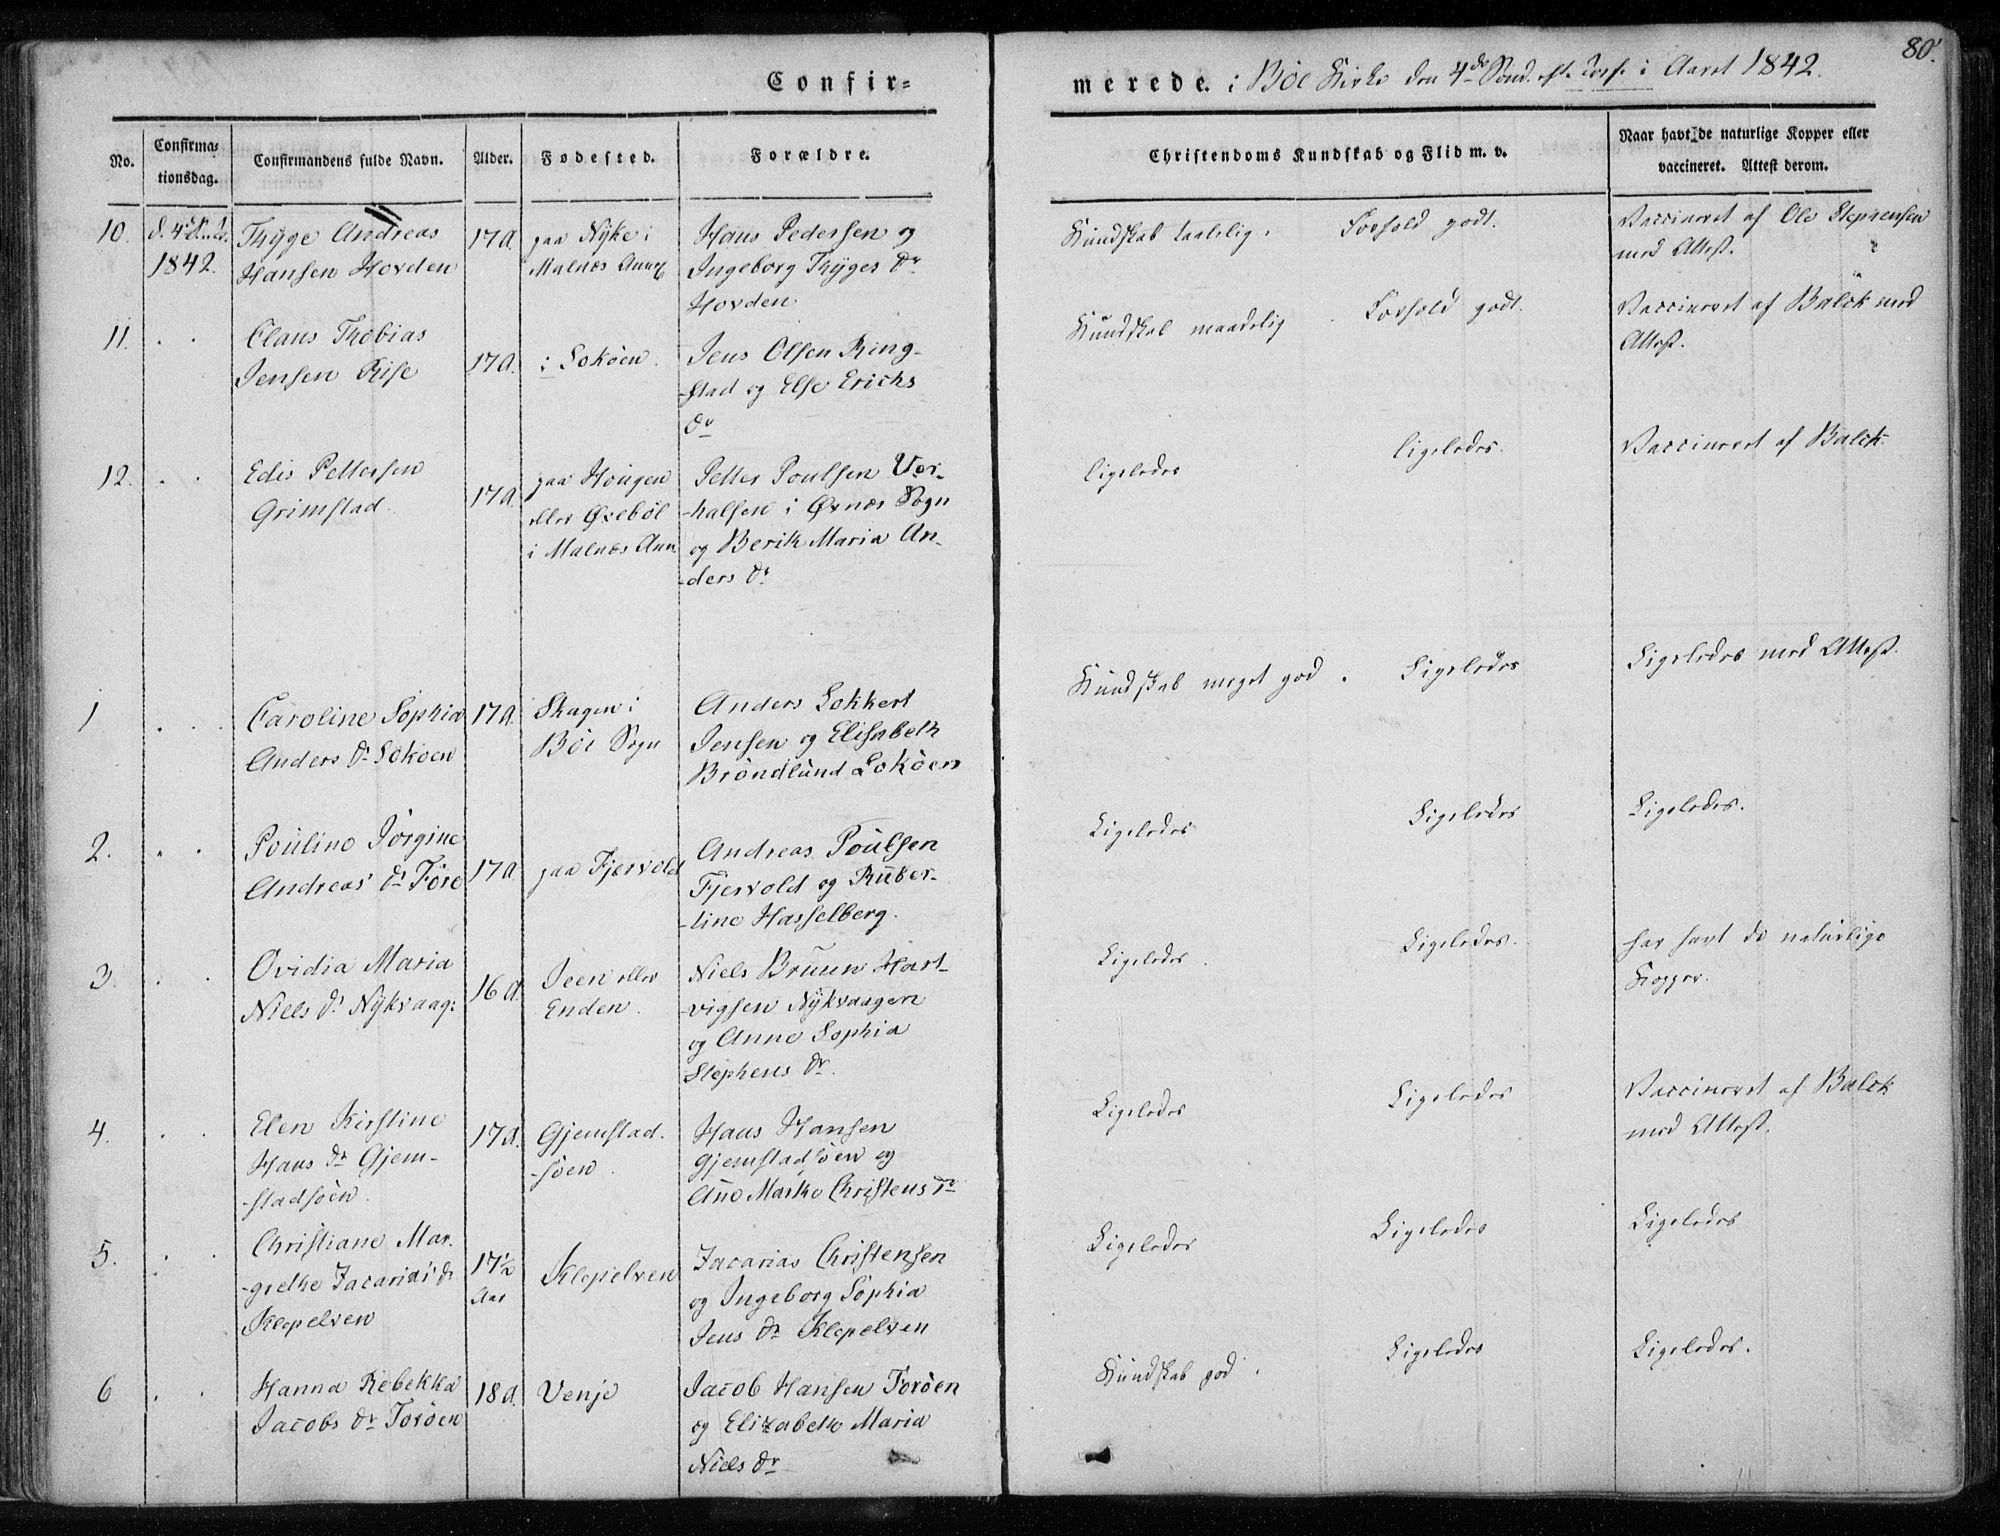 80.
Confir=
merede. i Böe Kirke den 4de Sönd. eft. i Aaret 1842.
No.
Confirma=
tionsdag.
Confirmandens fulde Navn.
Alder.
Fødested.
Forældre.
Christendoms Kundskab og Flid m. v.
Naar havt de naturlige Kopper eller
vaccineret. Attest derom.
10.
1842.
Thÿge Andreas
Hansen Hovden
17 A.
paa Nÿke i
Malnæs Annex
Hans Pedersen og
Ingeborg Thÿges Dr
Hovden
Kundskab taalelig. Forhold godt.
Vaccineret af Ole Stephensen
med Attest.
11. . .
Claus Thobias
Jensen Rise
17 A.
i Sokøen.
Jens Olsen Ring-
-stad og Else Erichs
Dr
Kundskab maadelig. Forhold godt.
Vaccineret af Balck med
Attest.
12. . .
Edis Pettersen
Grimstad
17 A.
paa Hougen
eller Øvebøl
i Malnæs Ann.
Petter Poulsen Ver-
-halsen i Øxnæs Sogn
og Berith Maria An-
-ders Dr
Ligeledes
Ligeledes.
Vaccineret af Balck.
1 . .
Caroline Sophia
Anders Dr Sokøen
17 A.
Skagen i
Böe Sogn
Anders Lokkert
Jensen og Elisabeth
Bröndlund Sokøen
Kundskab meget god. Ligeledes
Ligeledes med Attest.
2. . .
Pouline Jörgine
Andreas' Dr Före
17 A
paa Fjærvold
Andreas Poulsen
Fjervold og Ruber-
-line Hasselberg.
Ligeledes
Ligeledes
Ligeledes.
3. . .
Ovidia Maria
Niels Dr Nÿkvaag:
16 A.
Steen eller
Enden.
Niels Bruun Hart-
-vigsen Nÿkvaagen
og Anne Sophia
Stephens Dr.
Ligeledes.
Ligeledes.
har havt de naturlige
Kopper.
4. . .
Elen Kirstine
Hans Dr Gjem-
-stadsöen.
17 A.
Gjemstad-
-söen.
Hans Hansen
Gjemstadsöen og
Ane Marthe Christens Dr
Ligeledes
Ligeledes
Vaccineret af Balck
med Attest.
5. . .
Christiane Mar-
-grethe Zacarias's Dr
Klepelven
17½
Aar
Klepelven
Zacarias Christensen
og Ingeborg Sophia
Jens Dr Klepelven
Ligeledes
Ligeledes
Ligeledes
6 . .
Hanna Rebekka
Jacobs Dr Foröen
18 A.
Venje
Jacob Hansen Foröen
og Elizabeth Maria
Niels Dr
Kundskab god.
Ligeledes
Ligeledes.